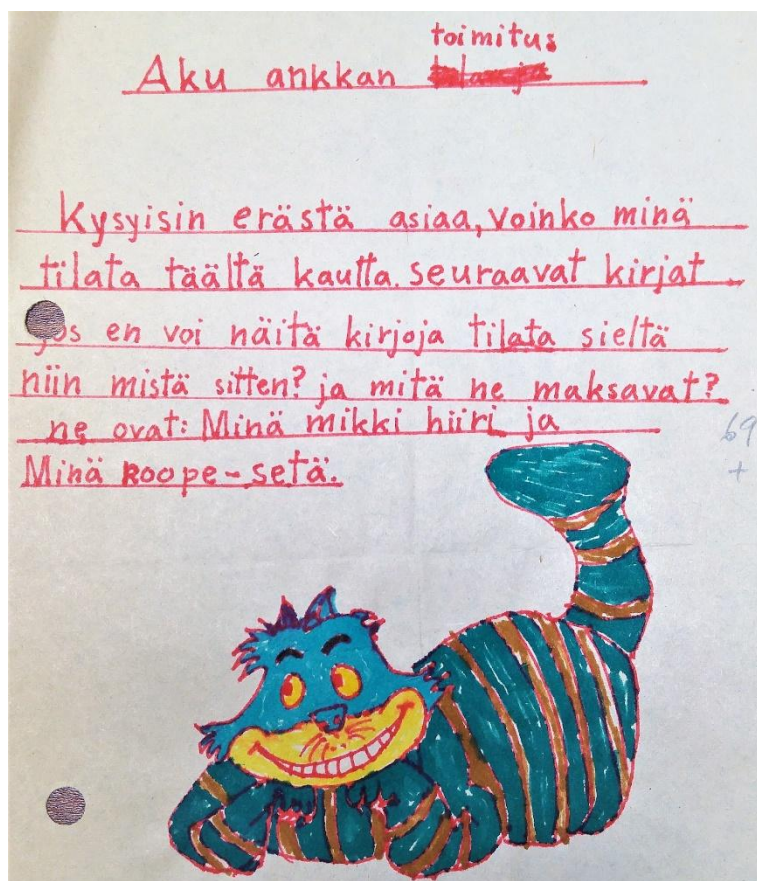 toimitus
Aku ankkan
Kysyisin erästä asiaa, voinko minä
tilata täältä kautta. seuraavat kirjat
jos en voi näitä kirjoja tilata sieltä
niin mistä sitten? ja mitä ne maksavat?
ne ovat: Minä mikki hiiri ja
Minä roope-setä.
69
+